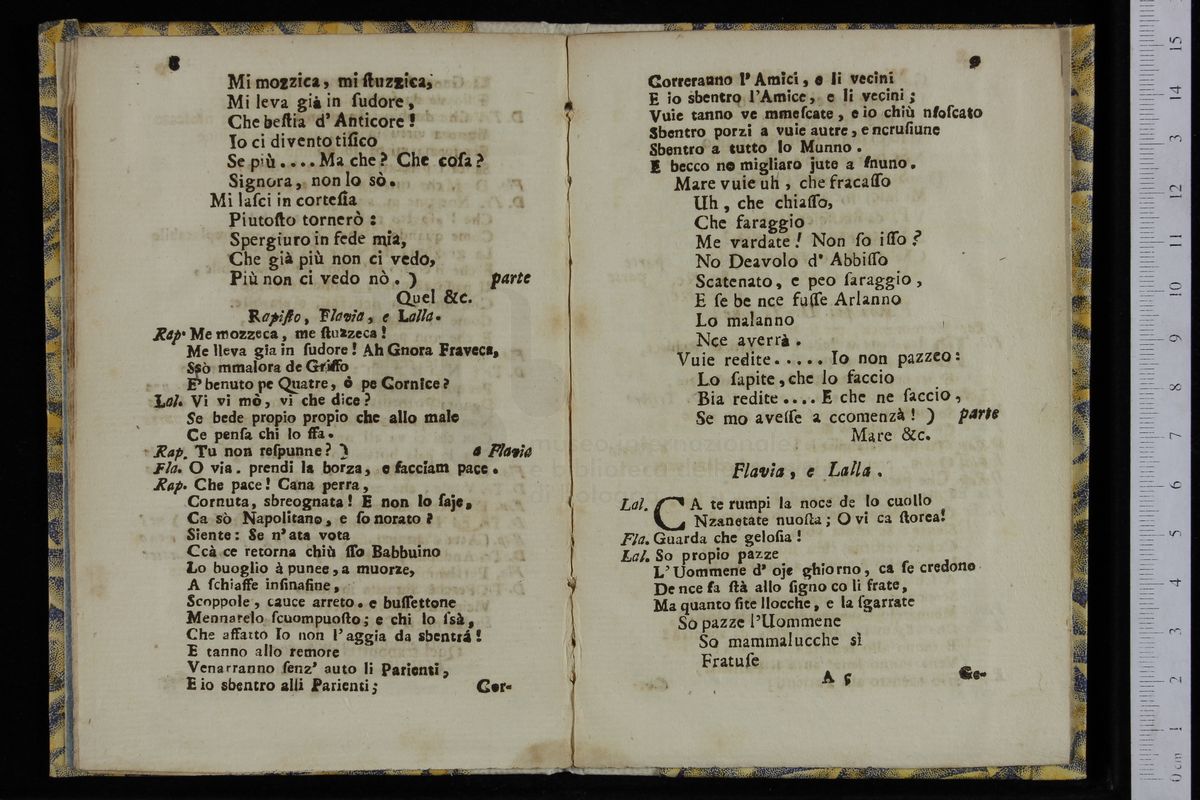 8
Mi mozzica, mi ſtuzzica,
Mi leva già in ſudore,
Che beſtia d' Anticore!
Io ci divento tiſico
Se più.... Ma che? Che coſa?
Signora, non lo sò.
Mi laſci in corteſia
Piutoſto tornerò:
Spergiuro in fede mia,
Che già più non ci vedo,
Più non ci vedo nò. ) parte
Quel &c.
Rapiſto, Flavia, e Lalla.
Rap. Me mozzeca, me ſtuzzeca!
Me lleva gia in ſudore! Ah Gnora Fraveca,
Ssò mmalora de Griffo
E' benuto pe Quatre, ò pe Cornice?
Lal. Vi vi mò, vi che dice?
Se bede propio propio che allo male
Ce penſa chi lo ffa.
Rap. Tu non reſpunne? ) a Flavia
Fla. O via. prendi la borza, e facciam pace.
Rap. Che pace! Cana perra,
Cornuta, sbreognata! E non lo ſaje,
Ca sò Napolitano, e ſo norato?
Siente: Se n'ata vota
Ccà ce retorna chiù ſſo Babbuino
Lo buoglio à punee, a muorze,
A ſchiaffe inſinafine,
Scoppole, cauce arreto. e buffettone
Mennarelo ſcuompuoſto; e chi lo ſsà,
Che affatto Io non l'aggia da sbentrá!
E tanno allo remore
Venarranno ſenz' auto li Parienti,
E io sbentro alli Parienti;
Cor-
9
Correranno l' Amici, e li vecini
E io sbentro l'Amice, e li vecini;
Vuie tanno ve mmeſcate, e io chiù nfoſcato
Sbentro porzi a vuie autre, e ncruſiune
Sbentro a tutto lo Munno.
E becco no migliaro jute a ſnuno.
Mare vuie uh, che fracaſſo
Uh, che chiaſſo,
Che faraggio
Me vardate! Non ſo iſſo?
No Deavolo d' Abbiſſo
Scatenato, e peo ſaraggio,
E ſe be nce fuſſe Arlanno
Lo malanno
Nce averrà.
Vuie redite..... Io non pazzeo:
Lo ſapite, che lo faccio
Bia redite.... E che ne ſaccio,
Se mo aveſſe a ccomenzà! ) parte
Mare &c.
Flavia, e Lalla.
Lal. CA te rumpi la noce de lo cuollo
Nzanetate nuoſta; O vi ca ſtorea!
Fla. Guarda che geloſia!
Lal. So propio pazze
L'Uommene d' oje ghiorno, ca ſe credono
De nce fa ſtà allo ſigno co li frate,
Ma quanto ſite llocche, e la ſgarrate
So pazze l'Uommene
So mammalucche sì
Fratuſe
A 5
Ge-
museo internazionale
e biblioteca della
di Bologna
0 cm 1 2 3 4 5 6 7 8 9 10 11 12 13 14 15